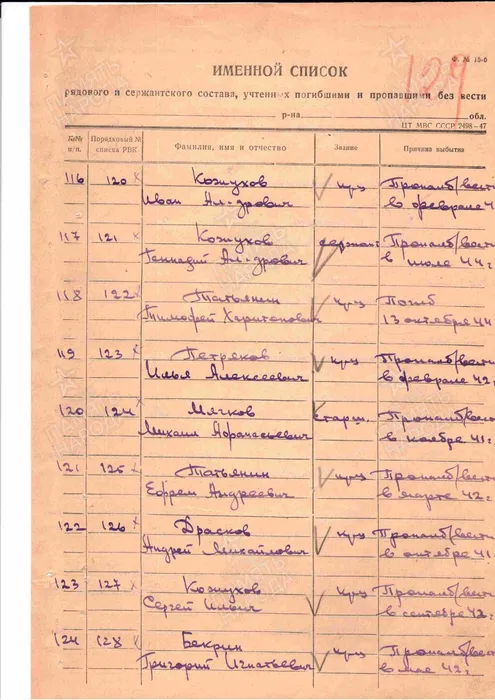 Ф. № 15-б
129
ИМЕННОЙ СПИСОК
рядового и сержантского состава, учтенных погибшими и пропавшими без вести
р-на обл.
ЦТ МВС СССР 2498-47
№№ п/п. Порядковый № списка РВК Фамилия, имя и отчество Звание Причина выбытия
116 120 Кожухов кр-ц Пропал б/вести
Иван Ал-дрович в феврале 4
117 121 Кожухов сержант Пропал б/вести
Геннадий Ал-дрович в июле 44 г
118 122 Татьянин кр-ц Погиб
Тимофей Харитонович 13 октября 44
119 123 Петряков кр-ц Пропал б/вести
Илья Алексеевич в феврале 42 г.
120 124 Мячков старш. Пропал б/вести
Михаил Афанасьевич в ноябре 41 г.
121 125 Татьянин кр-ц Пропал б/вести
Ефрем Андреевич в марте 42 г.
122 126 Драсков кр-ц Пропал б/вести
Андрей Михайлович в октябре 41
123 127 Кожухов кр-ц Пропал б/вести
Сергей Ильич в сентябре 42 г.
124 128 Бекрин кр-ц Пропал б/вести
Григорий Игнатьевич в мае 42 г.